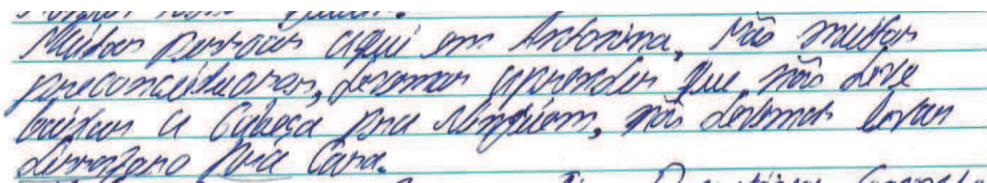 Muitas pessoas aqui em Antonina, são muitos
preconceituosas, devemos aprender que não deve
baixar a Cabeça pra ninguém, não devemos levar
desaforo pra Casa.